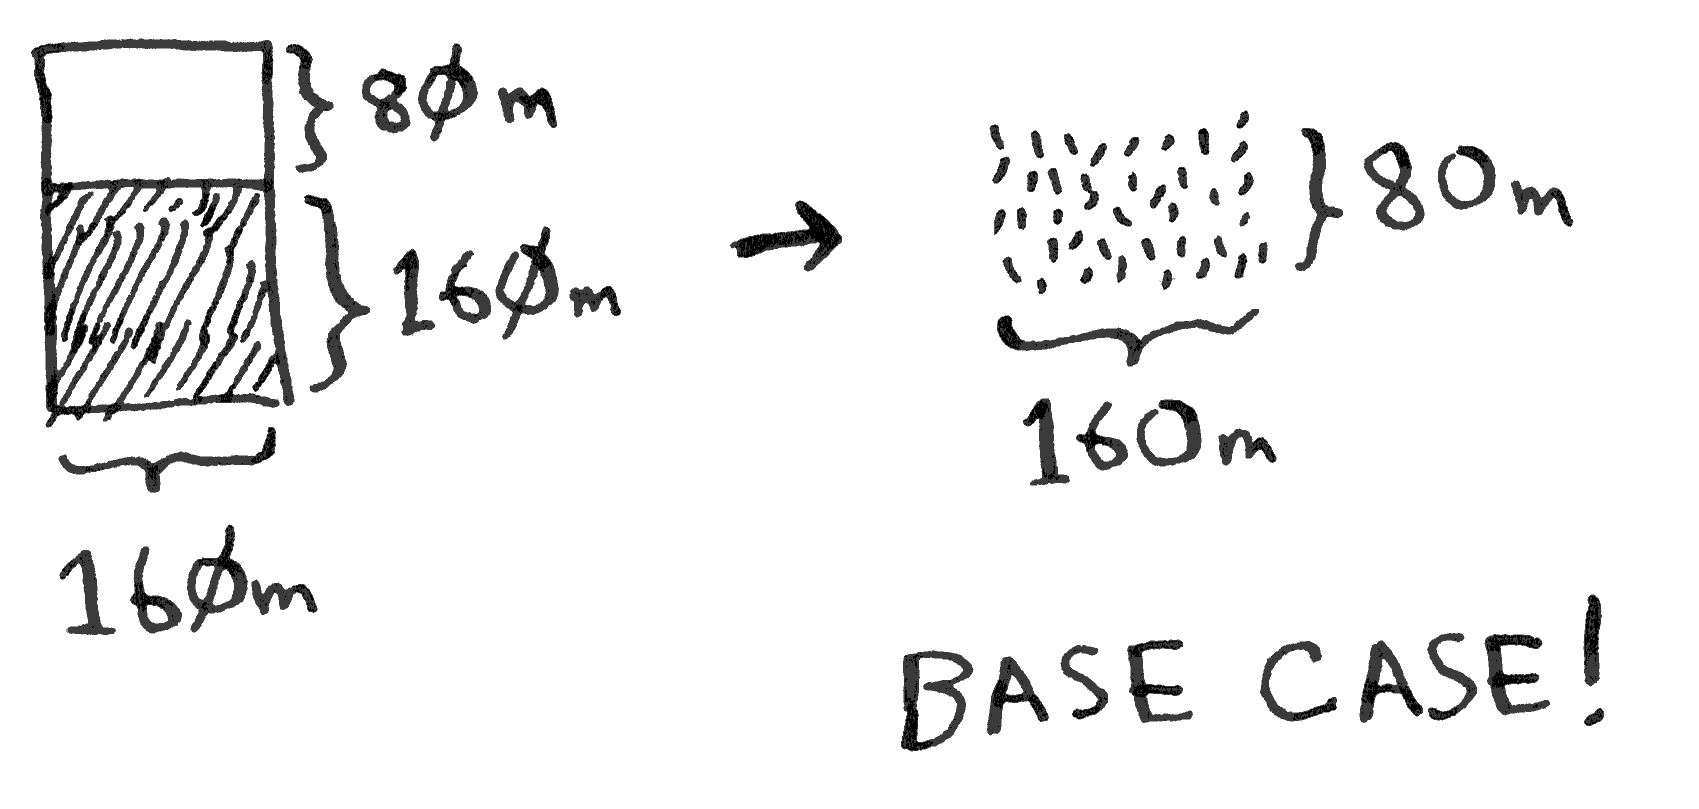 80 m
160 m
160 m
80 m
160 m
BASE CASE!